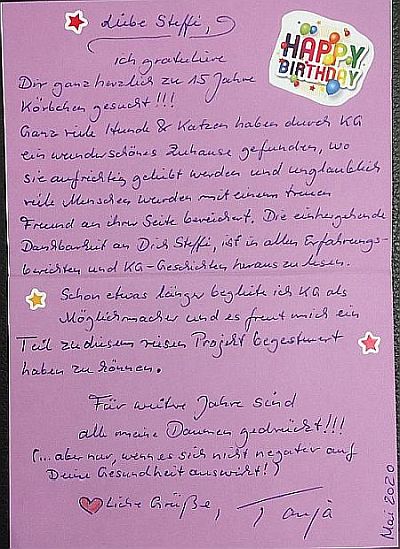 Liebe Steffi,
HAPPY
BIRTHDAY
ich gratuliere
Dir ganz herzlich zu 15 Jahre
Körbchen gesucht!!!
Ganz viele Hunde & Katzen haben durch KG
ein wunderschönes Zuhause gefunden, wo
sie aufrichtig geliebt werden und unglaublich
viele Menschen wurden mit einem treuen
Freund an ihrer Seite bereichert. Die einhergehende
Dankbarkeit an Dich Steffi, ist in allen Erfahrungs-
berichten und KG-Geschichten heraus zu lesen.
Schon etwas länger begleite ich KG als
Möglichmacher und es freut mich ein
Teil zu diesem riesen Projekt beigesteuert
haben zu können.
Für weitre Jahre sind
alle meine Daumen gedrückt!!!
(...aber nur, wenn es sich nicht negativ auf
Deine Gesundheit auswirkt!)
liche Grüße, Tanja
Mai 2020